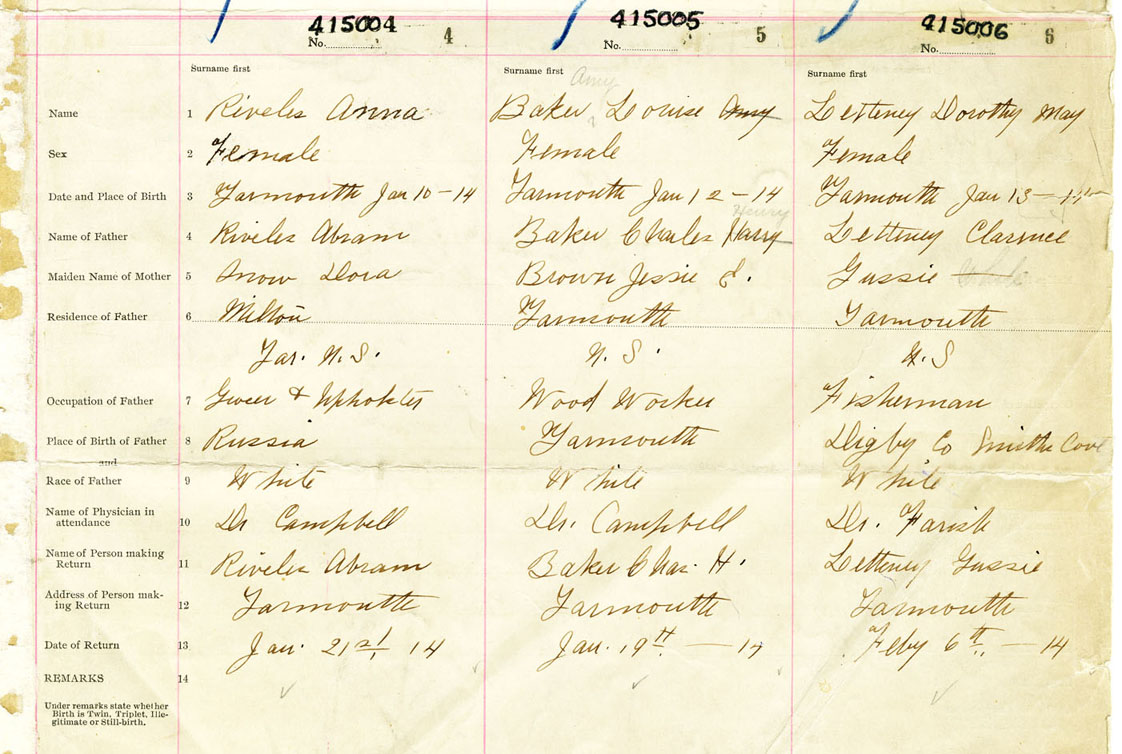 415004 415005 415006
No. 4 No. 5 No. 6
Surname first Surname first Amy Surname first
Name 1 Riveles Anna Baker Louise Amy Letteney Dorothy May
Sex 2 Female Female Female
Date and Place of Birth 3 Yarmouth Jan 10 - 14 Yarmouth Jan 12 - 14 Yarmouth Jan 13 -
Henry
Name of Father 4 Riveles Abram Baker Charles Harry Letteney Clarence
Maiden Name of Mother 5 Snow Dora Brown Jessie Gussie
Residence of Father 6 Milton Yarmouth Yarmouth
Yar. N.S. N.S. N.S
Occupation of Father 7 & Wood Worker Fisherman
Place of Birth of Father 8 Russia Yarmouth Digby Co Smiths Cove
and
Race of Father 9 White White White
Name of Physician in
attendance 10 Dr Campbell Dr. Campbell Dr. Farish
Name of Person making
Return 11 Riveles Abram Baker Chas. H. Letteney Gussie
Address of Person mak-
ing Return 12 Yarmouth Yarmouth Yarmouth
Date of Return 13 Jan. 21st 14 Jan. 19th — 14 Feby 6th — 14
REMARKS 14
Under remarks state whether
Birth is Twin, Triplet, Ille-
gitimate or Still-birth.